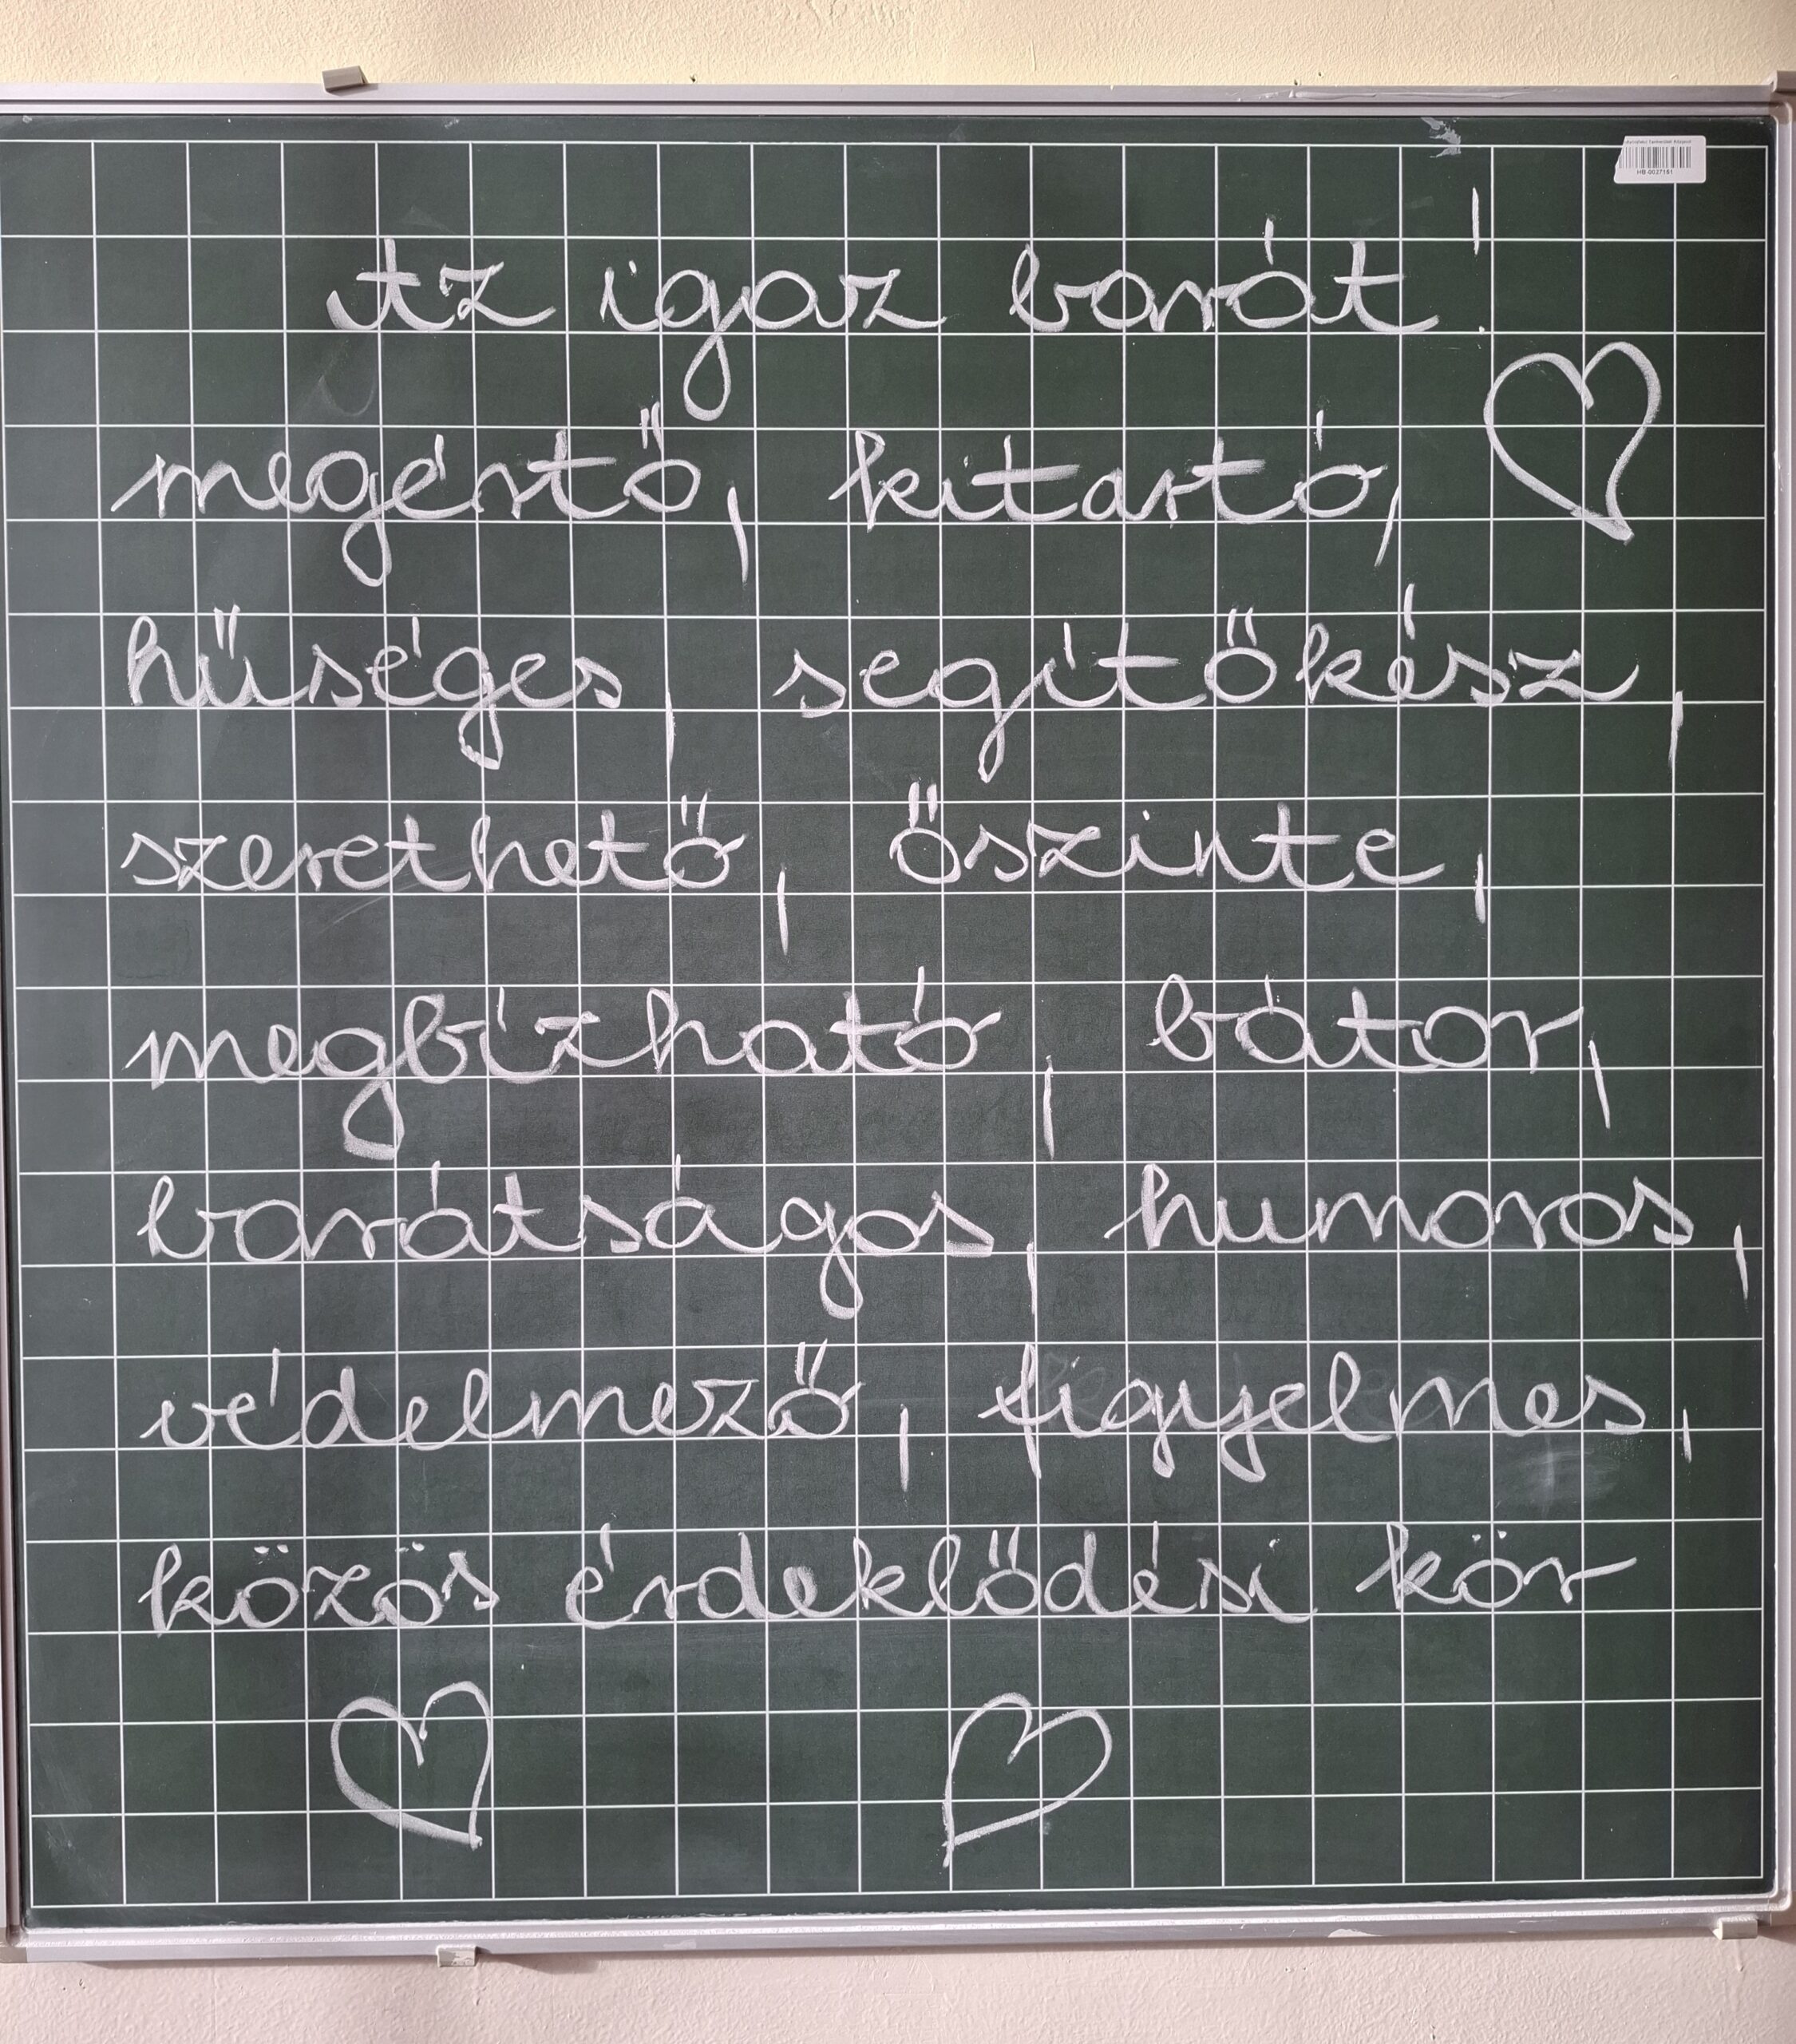 Az igaz barát!
megértő, kitartó,
hűséges, segítőkész,
szerethető, őszinte,
megbízható, bátor,
barátságos, humoros,
védelmező, figyelmes,
közös érdeklődési kör
HB-0027151